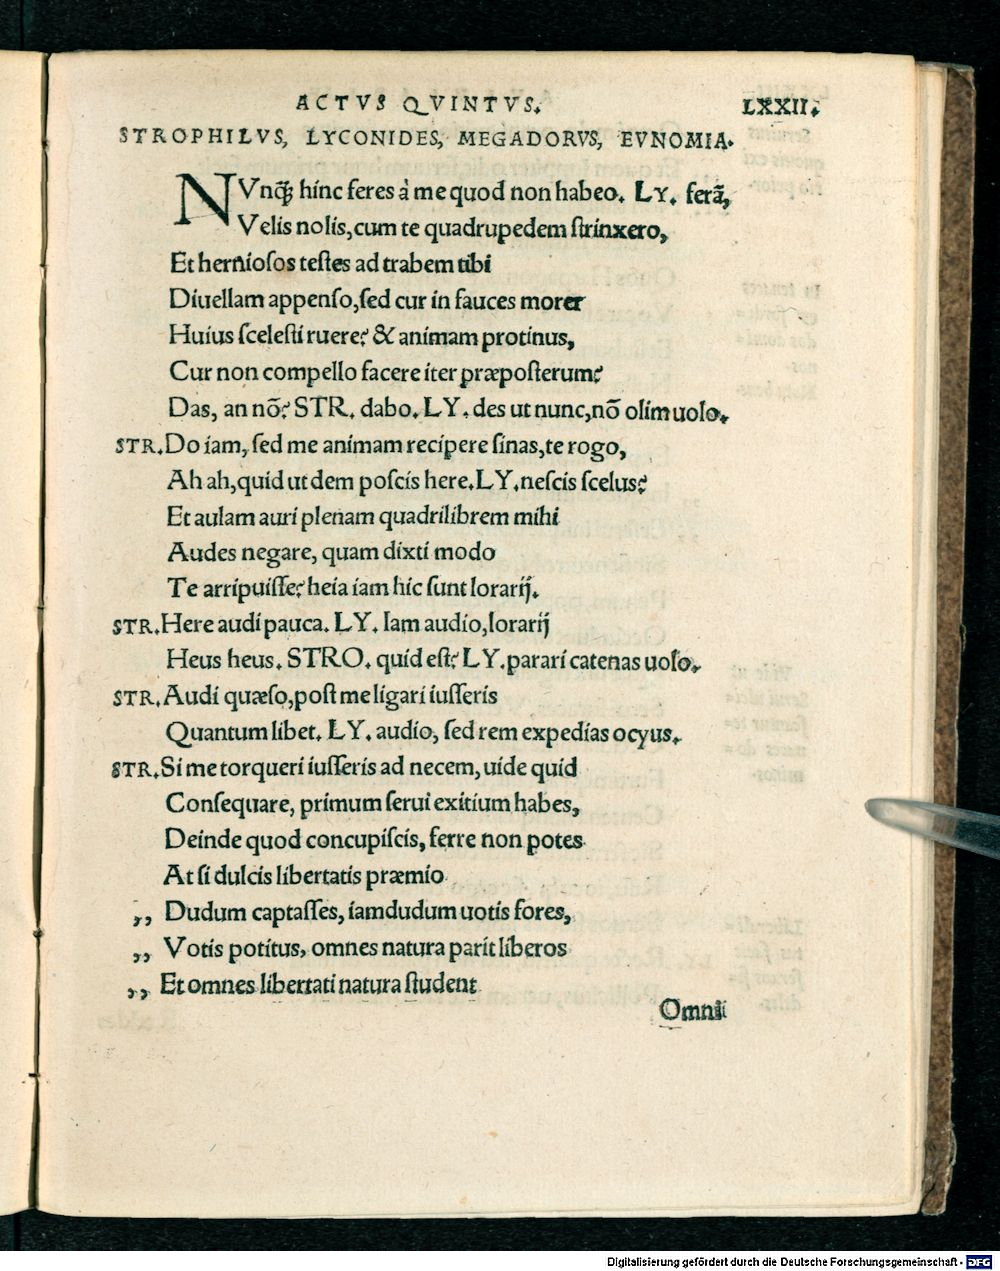 ACTVS QVINTVS. LXXII.
STROPHILVS, LYCONIDES, MEGADORVS, EVNOMIA.
NVnꝗ̃ hinc feres à me quod non habeo. LY. ferã,
Velis nolis, cum te quadrupedem ſtrinxero,
Et hernioſos teſtes ad trabem tibi
Diuellam appenſo, ſed cur in fauces moror
Huius ſceleſti ruere? & animam protinus,
Cur non compello facere iter præpoſterum?
Das, an nõ? STR. dabo. LY. des ut nunc, nõ olim uolo.
STR. Do iam, ſed me animam recipere ſinas, te rogo,
Ah ah, quid ut dem poſcis here. LY. neſcis ſcelus?
Et aulam auri plenam quadrilibrem mihi
Audes negare, quam dixti modo
Te arripuiſſe? heia iam hic ſunt lorarij.
STR. Here audi pauca. LY. Iam audio, lorarij
Heus heus. STRO. quid eſt? LY. parari catenas uolo.
STR. Audi quæſo, poſt me ligari iuſſeris
Quantum libet. LY. audio, ſed rem expedias ocyus.
STR. Si me torqueri iuſſeris ad necem, uide quid
Conſequare, primum ſerui exitium habes,
Deinde quod concupiſcis, ferre non potes
At ſi dulcis libertatis præmio
,, Dudum captaſſes, iamdudum uotis fores,
,, Votis potitus, omnes natura parit liberos
,, Et omnes libertati natura ſtudent
Omni
Digitalisierung gefördert durch die Deutsche Forschungsgemeinschaft - DFG